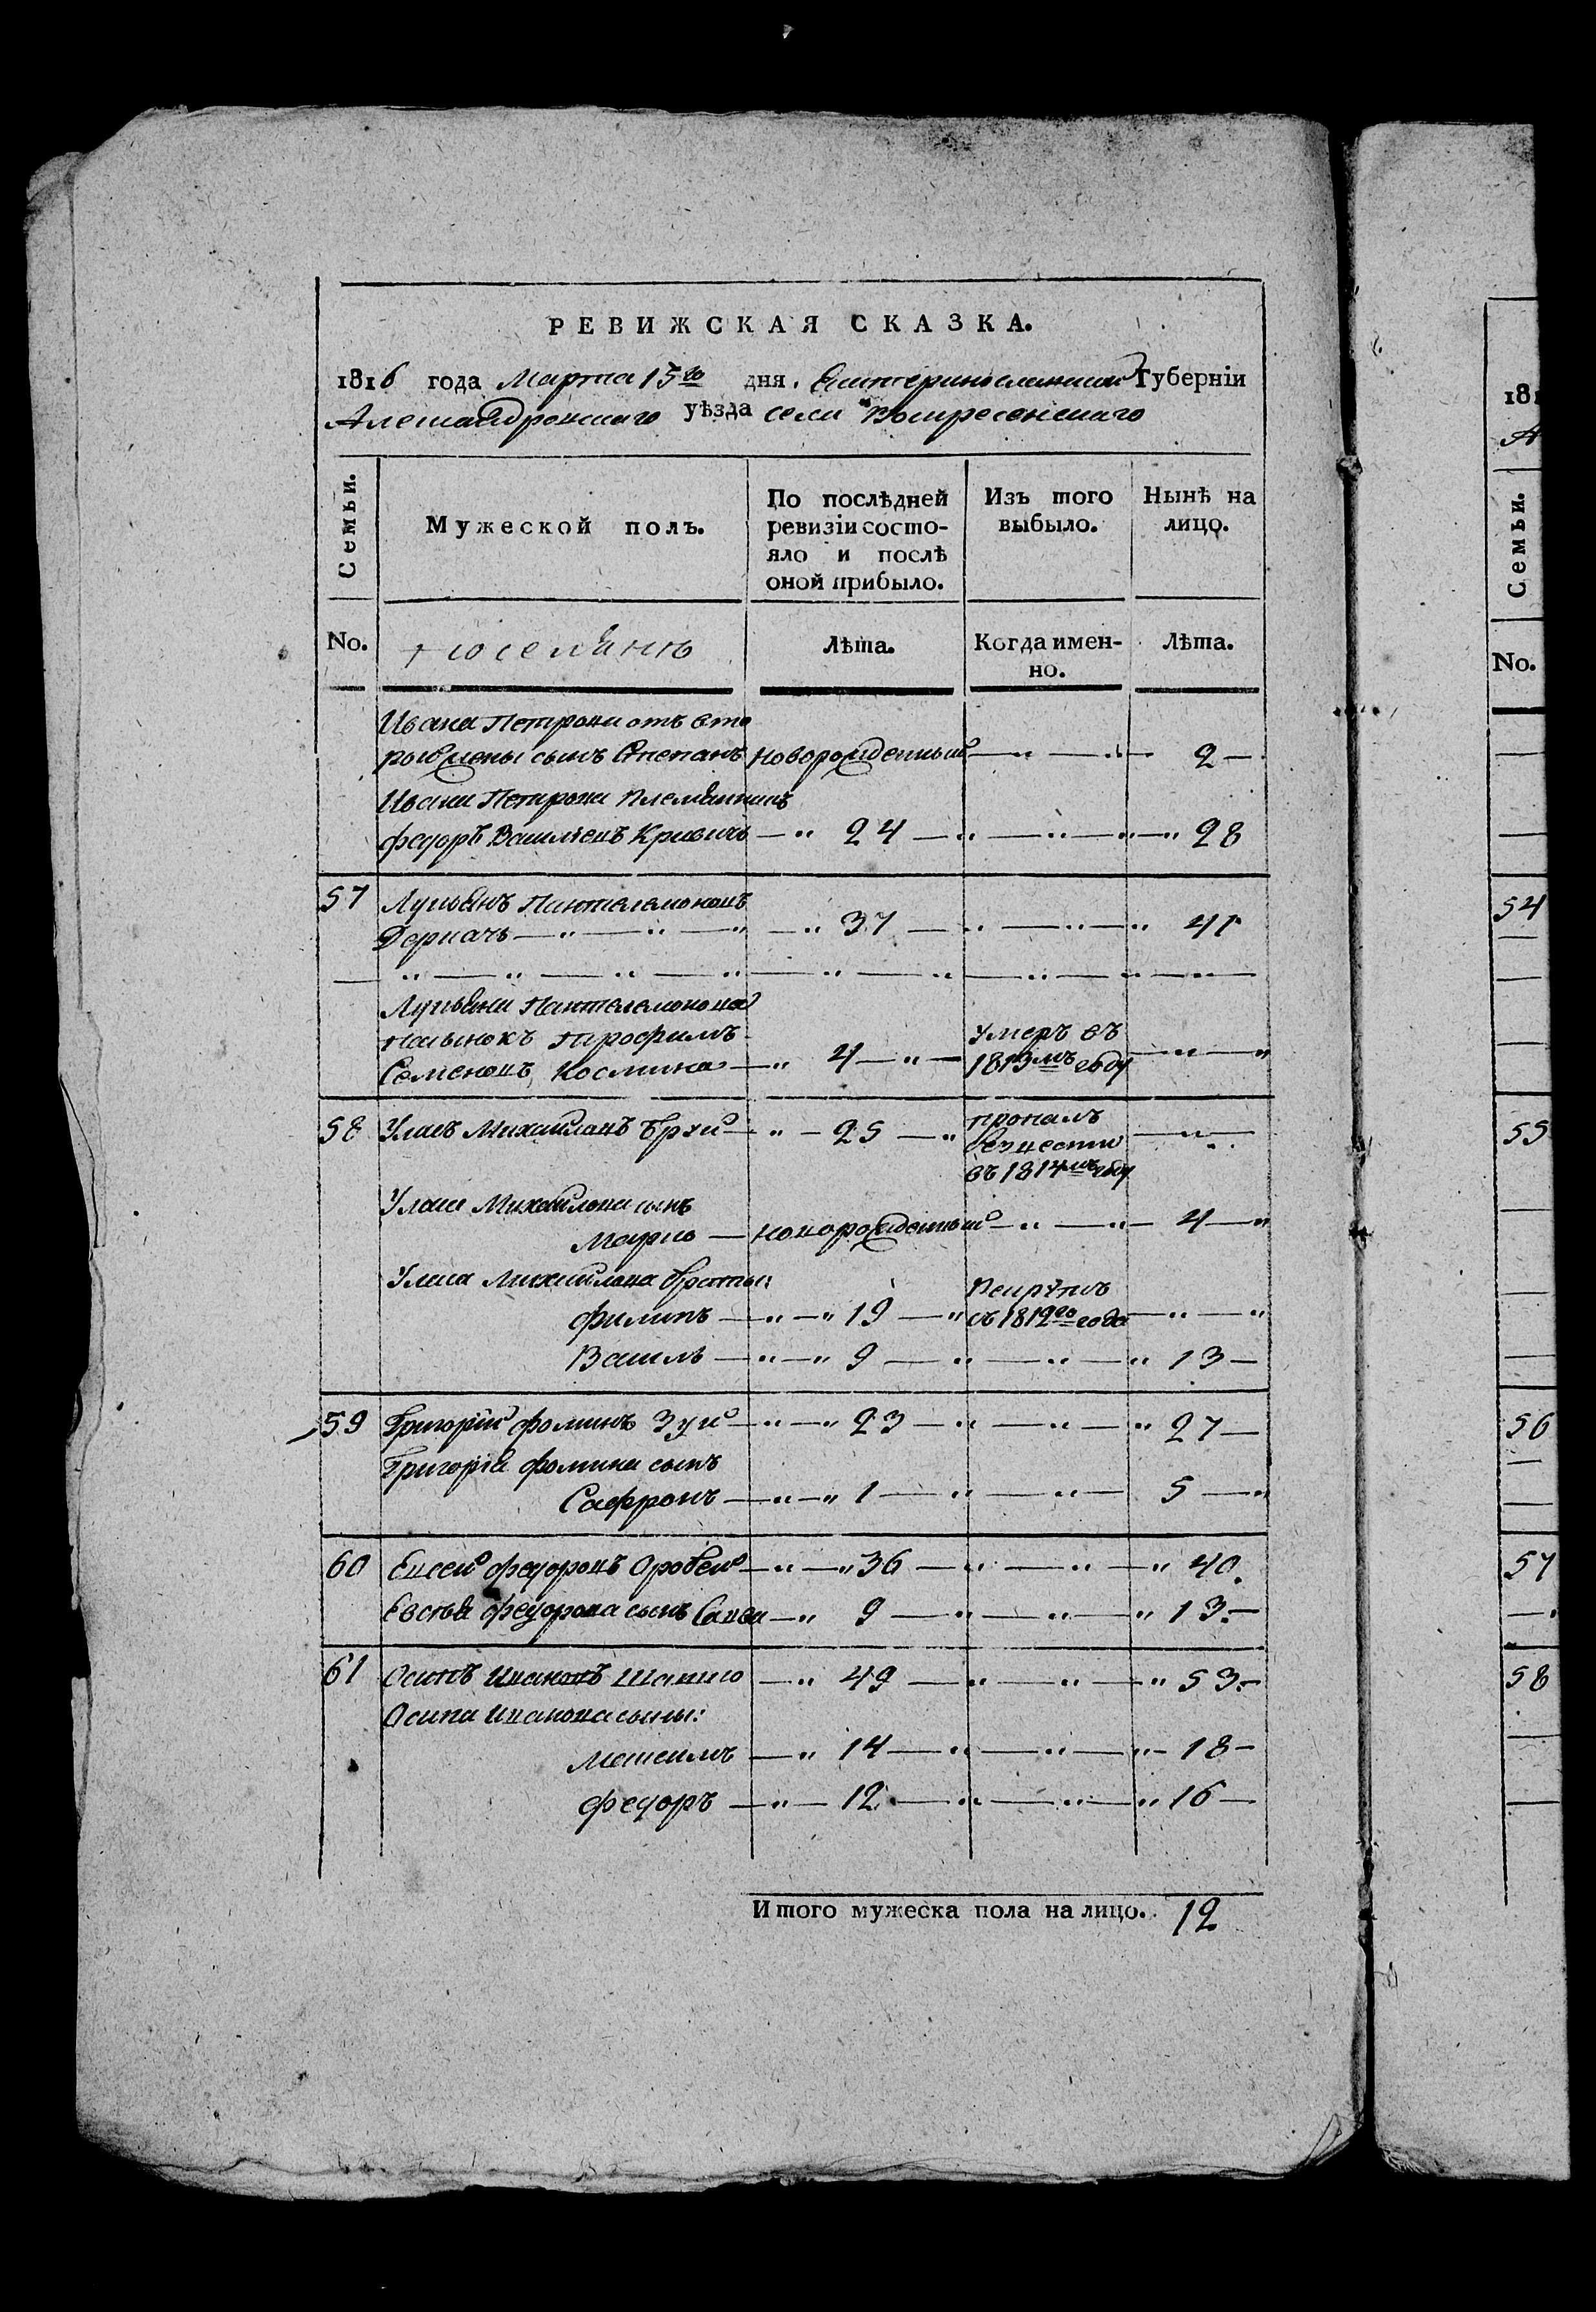 РЕВИЖСКАЯ СКАЗКА.
1816 года Марта 15го дня. Екатеринославской Губерніи
Александровскаго уѣзда села Воскресенскаго
Семьи. Мужеской полъ. По послѣдней ревизіи состо-яло и послѣ оной прибыло. Изъ того выбыло. Нынѣ на лицо.
No. поселянъ Лѣта. Когда имен-но. Лѣта.
Ивана Петрова отъ вто
рой жены сынъ Степанъ новорожденный — „ — „ — 2 —
Ивана Петрова племянникъ
федоръ Васильевъ — „ 24 — „ — „ — „ — „ 28
57 Лукьянъ Пантелемоновъ
Деркачъ — „ — „ — „ — „ 37 — „ — „ — „ 41
— „ — „ — „ — „ — „ — „ — „ — „ — „ —
Лукьяна Пантелемонова
пасынокъ Трофимъ умеръ въ
Семеновъ Космина — „ 4 — „ — 1813мъ году — „ — „
58 Уласъ Михайловъ — „ — 25 — „ пропалъ — „ —
безчестно
въ 1814мъ году
Уласа Михайлова сынъ
Марко — новорожденный — „ — „ — 4 — „
Уласа Михайлова братья:
филипъ — „ — „ 19 — „ рекрутъ съ 1812го года — „ — „
Василь — „ — „ 9 — „ — „ — „ 13 —
59 Григорій фоминъ Зуй — „ — „ 23 — „ — „ — „ 27 —
Григорія фомина сынъ
Сафронъ — „ — „ 1 — „ — „ — 5 — „
60 Евсей федоровъ — „ — „ 36 — „ — „ — „ 40.
Евсея федорова сынъ Савва — „ 9 — „ — „ — „ 13. —
61 Осипъ Ивановъ — „ 49 — „ — „ — „ 53. —
Осипа Иванова сыны:
Максимъ — „ 14 — „ — „ — „ — 18 —
федоръ — „ — 12. — „ — „ — „ 16 —
Итого мужеска пола на лицо. 12
181
А
Семьи.
No.
54
55
56
57
58